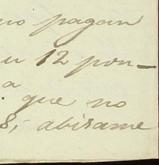 no pagan
u 12 pon-
a
. que no
8, abisame